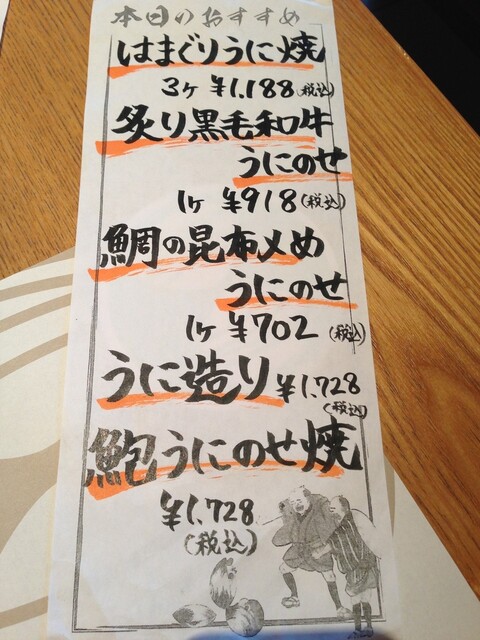 本日のおすすめ
はまぐりうに焼
3ヶ ¥1,188(税込)
炙り黒毛和牛
うにのせ
1ヶ ¥918(税込)
鯛の昆布〆め
うにのせ
1ヶ ¥702(税込)
うに造り ¥1,728
(税込)
鮑うにのせ焼
¥1,728
(税込)